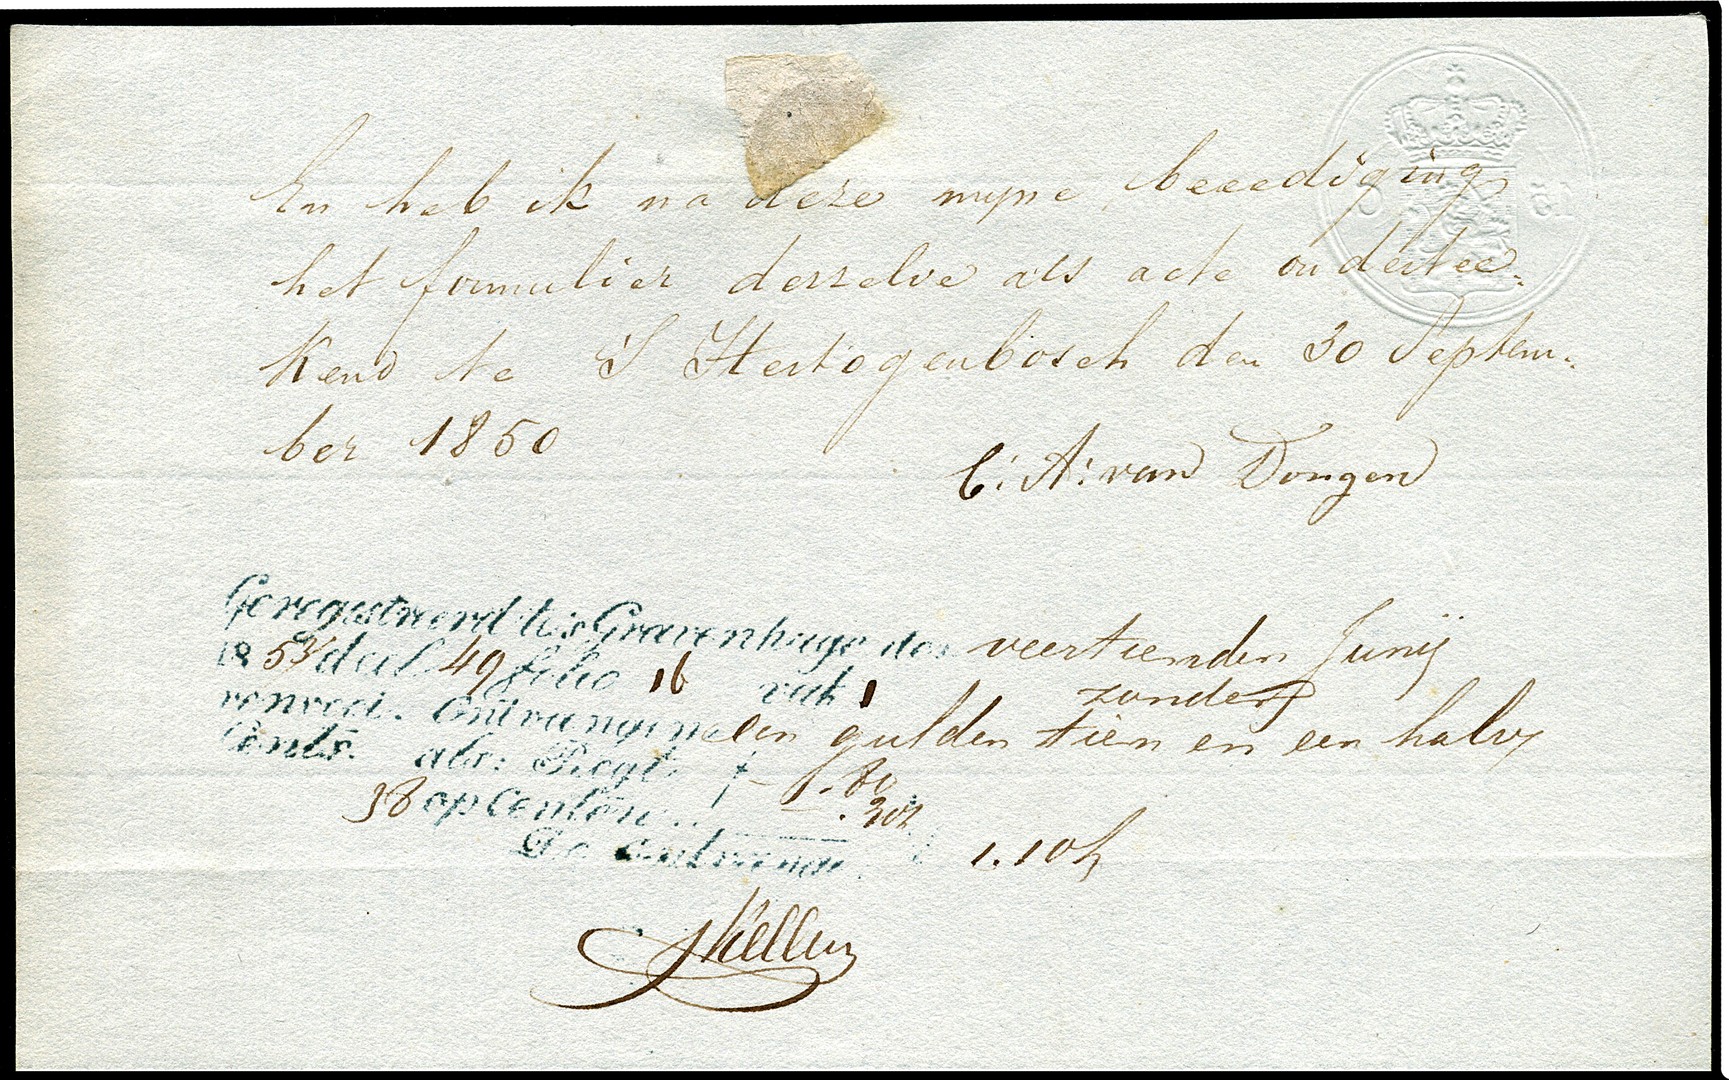 En heb ik na deze mijne beeediging
het formulier derzelve als acte ondertee-
kend te S Hertogenbosch den 30 Septem-
ber 1850
C: A: van Dongen
Geregistreerd te 's Gravenhage den veertienden Junij
18 53 deel 49 folio 16 vak 1 zonder
renvooi. Ontvangen een gulden tien en een halve
Cents. als: Regt f 1.80
38 opCenten .30½
De Ontvanger 1.10½